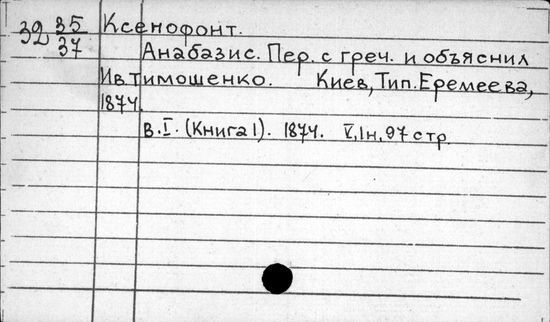 32 35/37 Ксенофонт.
Анабазис. Пер. с греч. и объяснил
Ив.Тимошенко. Киев, Тип. Еремеева,
1874.
в. I. (Книга 1). 1874. V, 1н, 97 стр.